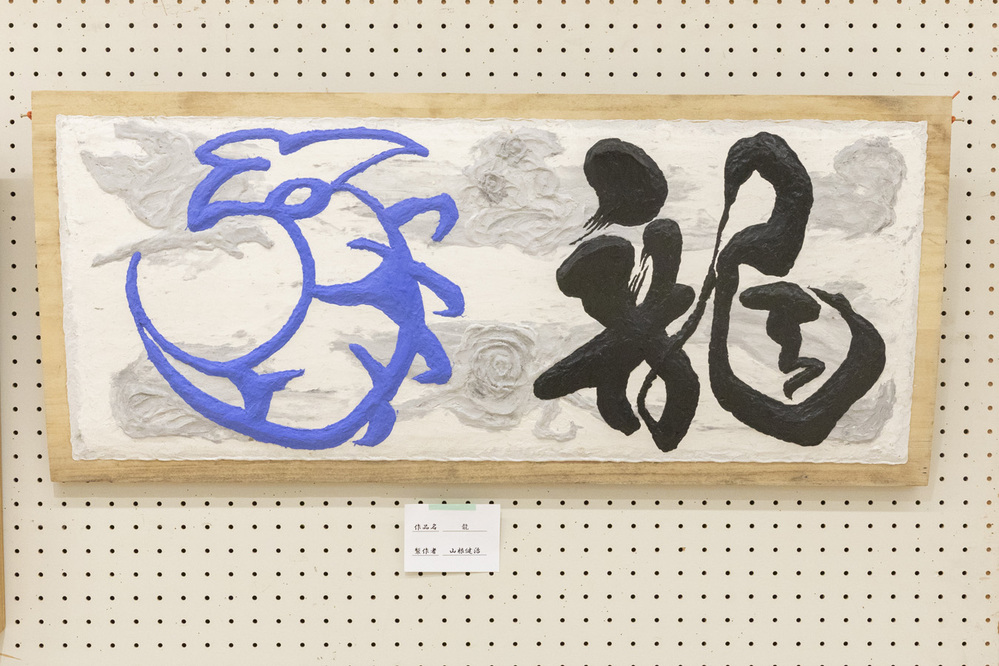 龍
作品名 龍
製作者 山根健治